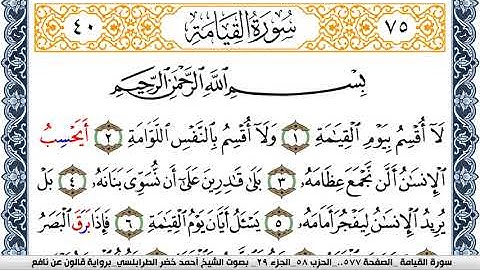 ٧٥ سُورَةُ القِيَامَةِ ٤٠
بِسْمِ اللَّهِ الرَّحْمَٰنِ الرَّحِيمِ
لَآ أُقْسِمُ بِيَوْمِ اِ۬لْقِيَٰمَةِ ١ وَلَآ أُقْسِمُ بِالنَّفْسِ اِ۬للَّوَّامَةِ ٢ أَيَحْسِبُ
اَ۬لْإِنسَٰنُ أَلَّن نَّجْمَعَ عِظَامَهُۥ ٣ بَلَىٰ قَٰدِرِينَ عَلَىٰٓ أَن نُّسَوِّيَ بَنَانَهُۥ ٤ بَلْ
يُرِيدُ اُ۬لْإِنسَٰنُ لِيَفْجُرَ أَمَامَهُۥ ٥ يَسْـَٔلُ أَيَّانَ يَوْمُ اُ۬لْقِيَٰمَةِ ٦ فَإِذَا بَرَقَ اَ۬لْبَصَرُ
سورة القيامة _الصفحة ٥٧٧....الحزب ٥٨_الجزء ٢٩_ بصوت الشيخ أحمد خضر الطرابلسي_برواية قالون عن نافع